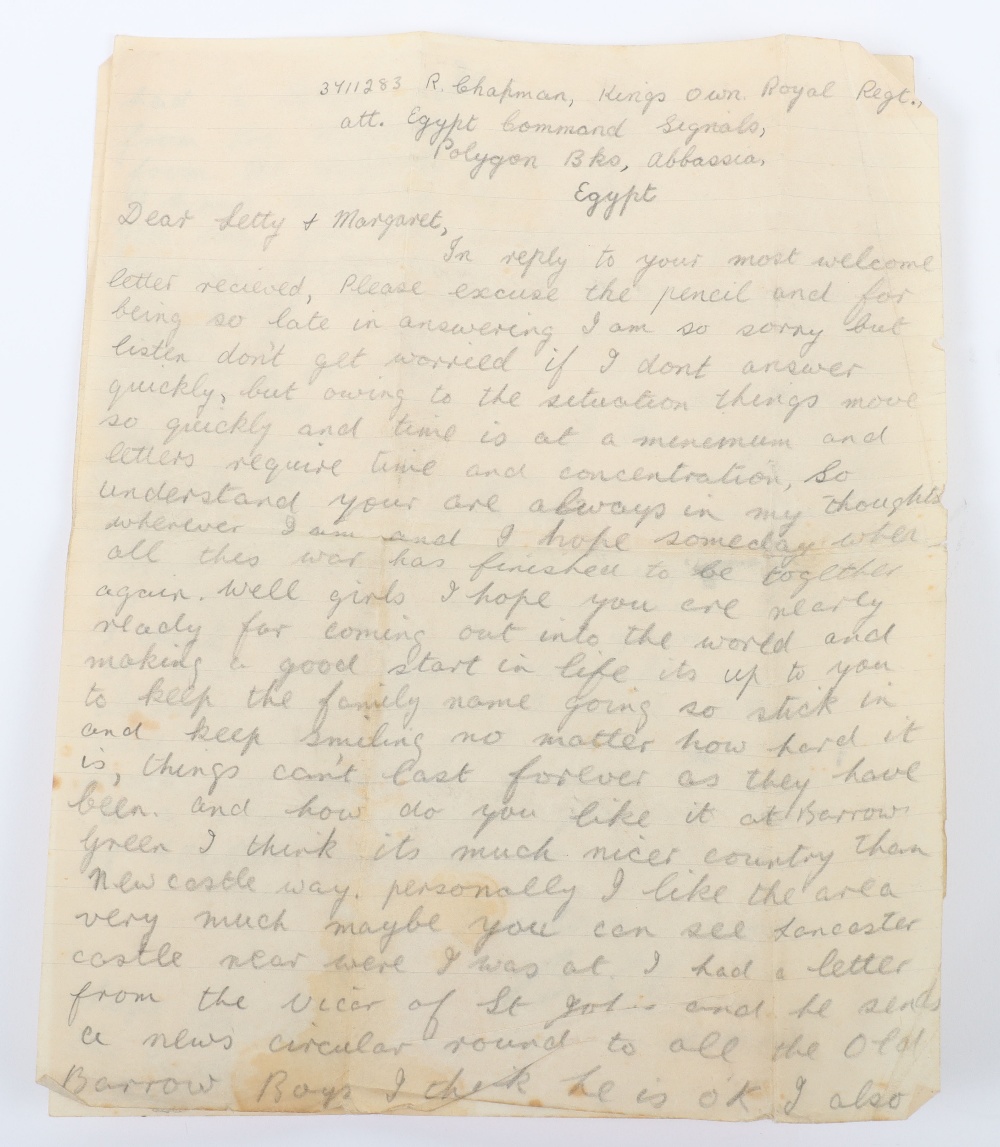 3711283 R. Chapman, Kings Own. Royal Regt.,
att. Egypt Command Signals,
Polygon Bks, Abbassia,
Egypt
Dear Letty & Margaret,
In reply to your most welcome
letter recieved, Please excuse the pencil and for
being so late in answering I am so sorry but
listen don't get worried if I dont answer
quickly, but owing to the situation things move
so quickly and time is at a minemum and
letters require time and concentration, So
understand your are always in my thoughts
wherever I am and I hope someday when
all this war has finished to be together
again. Well girls I hope you are nearly
ready for coming out into the world and
making a good start in life its up to you
to keep the family name going so stick in
and keep smiling no matter how hard it
is, things can't last forever as they have
been. and how do you like it at Barrow
Green I think its much nicer country than
Newcastle way. personally I like the area
very much maybe you can see Lancaster
castle near were I was at. I had a letter
from the vicar of St Johns and he sends
a news circular round to all the Old
Barrow Boys I think he is O'K I also